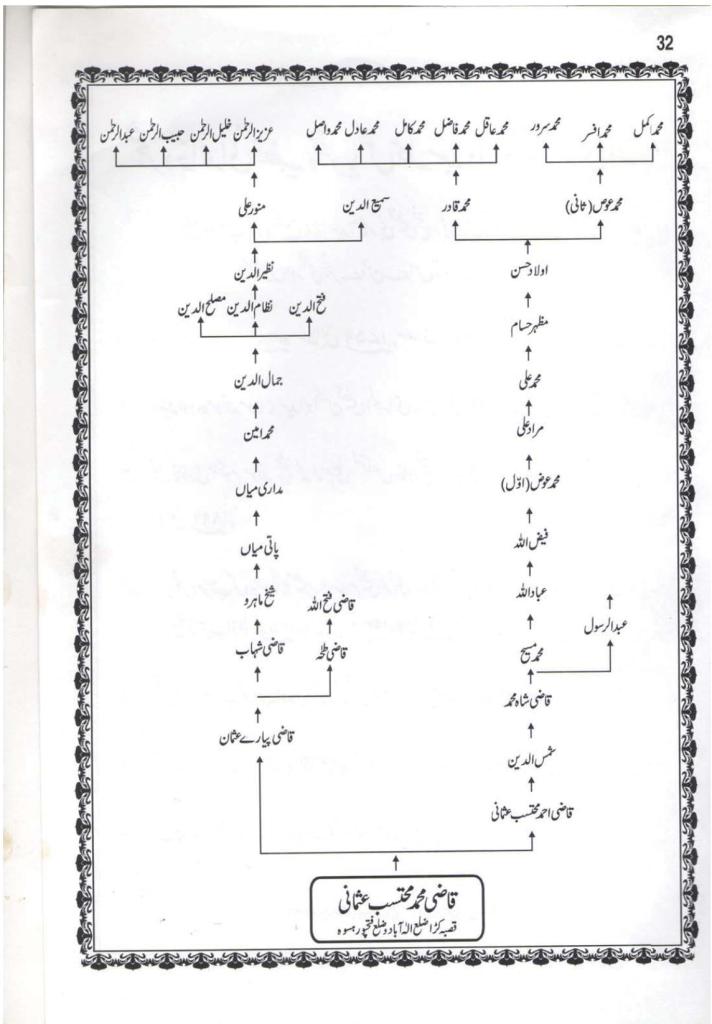 32
محمد اکمل محمد افسر محمد سرور محمد عاقل محمد فاضل محمد کامل محمد عادل محمد واصل عزیز الرحمٰن خلیل الرحمٰن حبیب الرحمٰن عبد الرحمٰن
محمد عوض (ثانی) محمد قادر سمیع الدین منور علی
اولاد حسن نظیر الدین
مظہر حسام فتح الدین نظام الدین مصلح الدین
محمد علی جمال الدین
مراد علی محمد امین
محمد عوض (اوّل) مداری میاں
فیض اللہ پاتی میاں
عباد اللہ قاضی فتح اللہ شیخ ماہرو
عبد الرسول محمد مسیح قاضی طٰہٰ قاضی شہاب
قاضی شاہ محمد
قاضی پیارے عثمان
شمس الدین
قاضی احمد محتسب عثمانی
قاضی محمد محتسب عثمانی
قصبہ کڑا ضلع الہٰ آباد و ضلع فتحپور ہسوہ